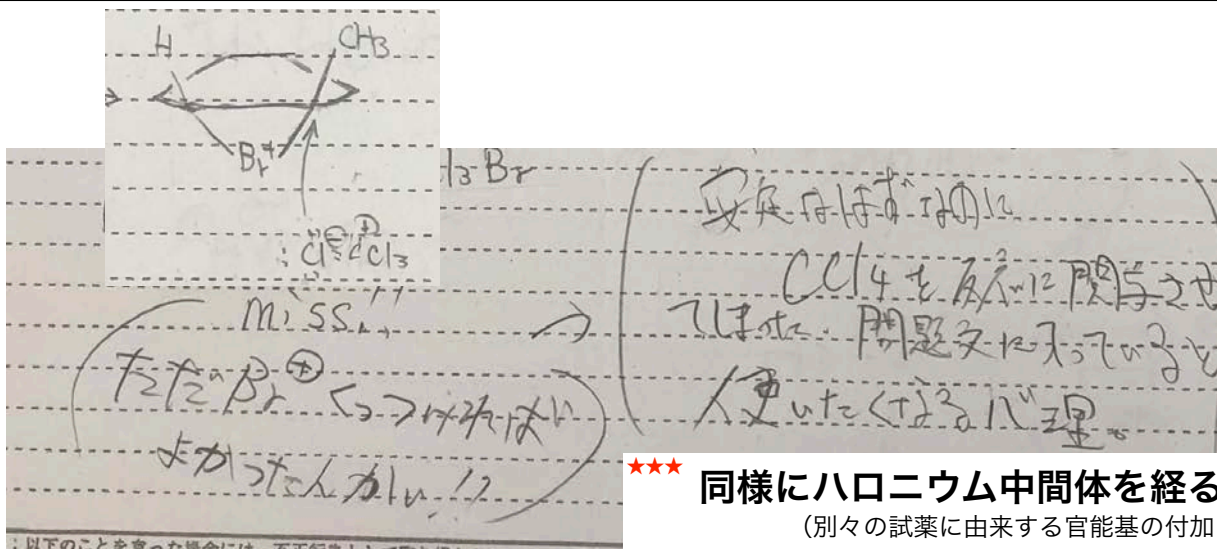 H
CH3
Br+
:Cl⊖ ⊕CCl3
H3-Br
miss!!
ただBr⊕くっつければ
よかったんかい!?
安定なはずなのに
CCl4を反応に関与させ
てしまった。問題文に入っていると
使いたくなる心理。
★★★ 同様にハロニウム中間体を経る
(別々の試薬に由来する官能基の付加
:以下のことを言った場合には、不正行為として